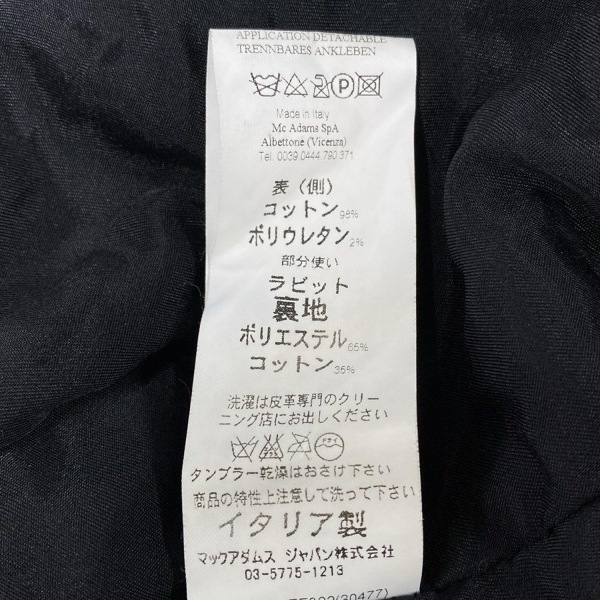 APPLICATION DETACHABLE
TRENNBARES ANKLEBEN
P
Made in Italy
Mc Adams SpA
Albettone (Vicenza)
Tel. 0039 0444 790 371
表（側）
コットン98%
ポリウレタン2%
部分使い
ラビット
裏地
ポリエステル65%
コットン35%
洗濯は皮革専門のクリー
ニング店にお出しください
ドライ
タンブラー乾燥はおさけ下さい
商品の特性上注意して洗って下さい
イタリア製
マックアダムス ジャパン株式会社
03-5775-1213
(30477)